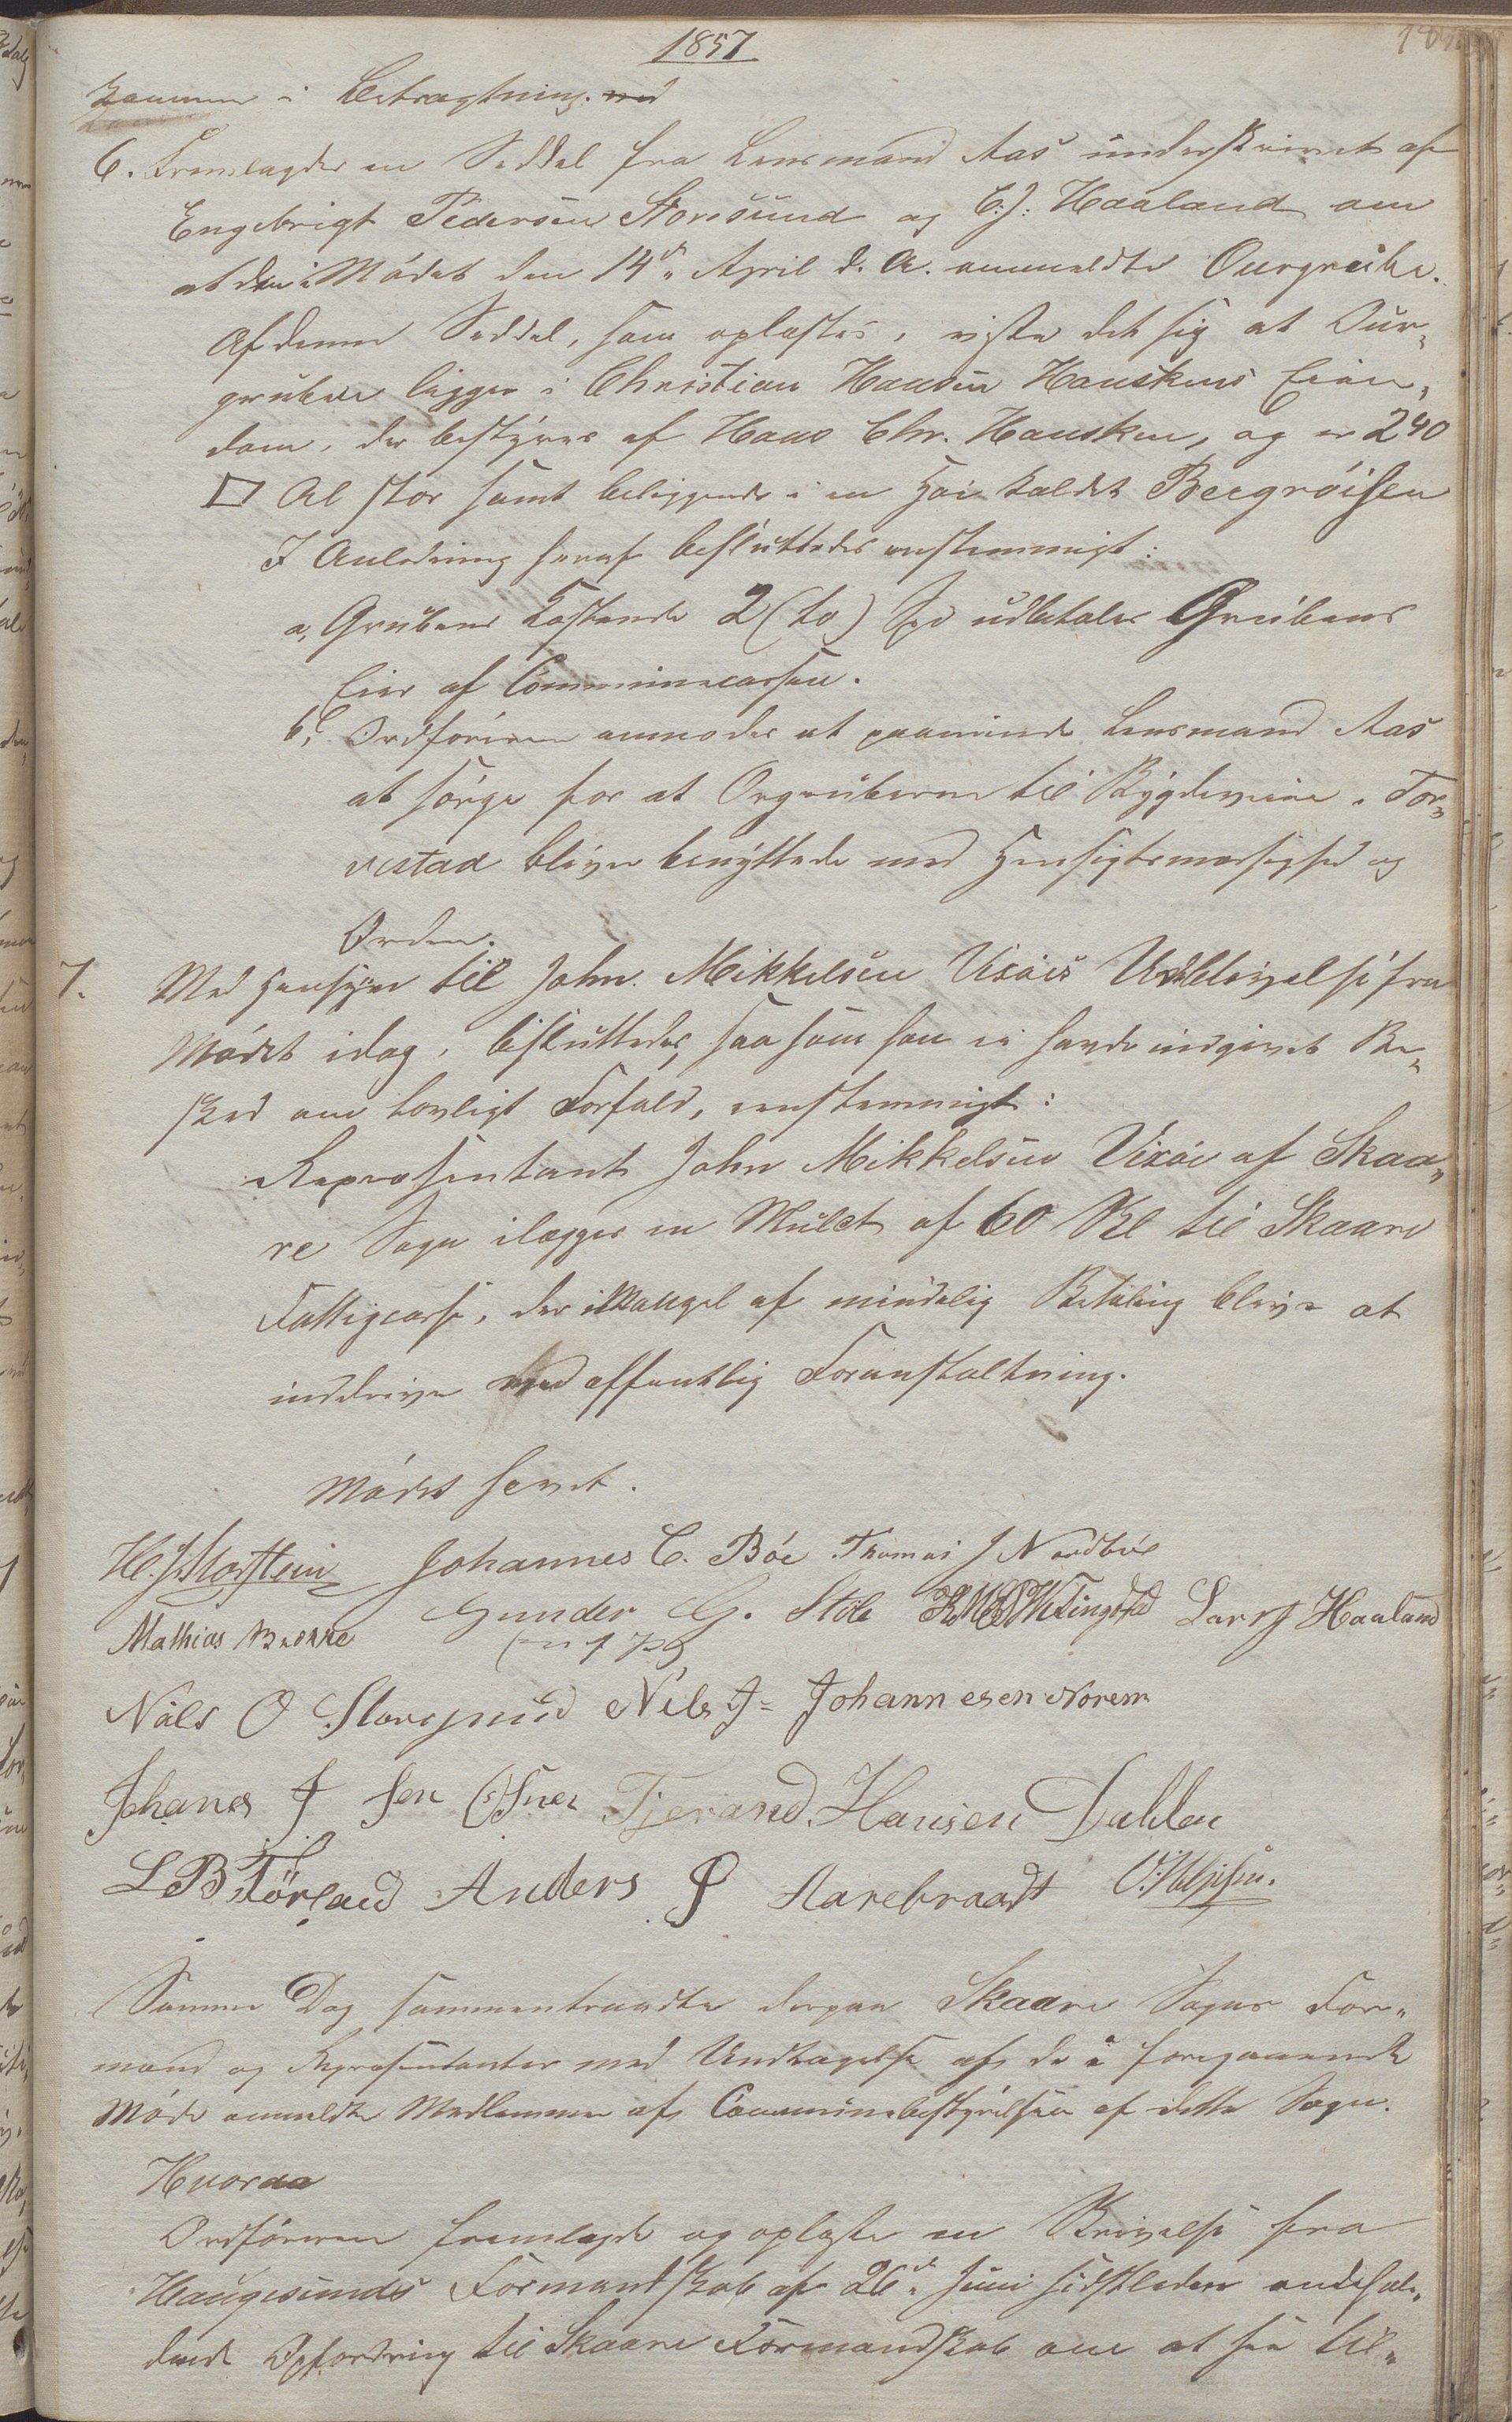 1857
kommer i Betragtning. med
6. Fremlagdes en Seddel fra Lensmand Aas underskrevet af
Engebrigt Pedersen Storesund og C. J. Haaland om
at den i Mødet den 14de April d. A. anmeldte Ourgrube.
Af denne Seddel, som oplæstes, viste det sig at Our-
gruben ligger i Christian Hansen Hauskens Eien-
dom, der bestyres af Hans Chr. Hausken, og er 240
□ Al stor samt beliggende i en Høi kaldet Beegrøisen
I Anledning heraf besluttedes enstemmigt:
a, Grubens Kostende 2 (to) Spd udbetales Grubens
Eier af Communecassen.
b, Ordføreren anmodes at paaminde Lensmand Aas
at sørge for at Orgruberne til Bygdeveiene i Tor-
vestad bliver benyttede med Hensigtsmæssighed og
Orden.
7. Med Hensyn til John Mikkelsen Vixøes Udeblivelse fra
Mødet idag, besluttedes, saasom han ei havde indgivet Be-
sked om lovligt Forfald, eenstemmigt:
Repræsentant John Mikkelsen Vixøe af Skaa-
re Sogn ilægges en Mulct af 60 Sk til Skaare
Fattigcasse, der i Mangel af mindelig Betaling bliver at
inddrive ved offentlig Foranstaltning.
Mødet hævet.
H. J. Morstein Johannes C. Bøe Thomas J Nordbøe
Mathias Gunder G. Stole Lars J Haaland
Nils O Storesund Nils J. Johannesen Norem
Johanes J sen Tjerand Hansen Dahlen
L B Førland Anders J Aarebraadt
Samme Dag sammentraadte derpaa Skaare Sogns For-
mænd og Repræsentanter med Undtagelse af de i foregaaende
Møde anmeldte Medlemmer af Communebestyrelsen af dette Sogn.
Hvorda
Ordføreren fremlagde og oplæste en Skrivelse fra
Haugesunds Formandskab af 26de Juni sidstleden indehol-
dende Opfordring til Skaare Formandskab om at faa til-